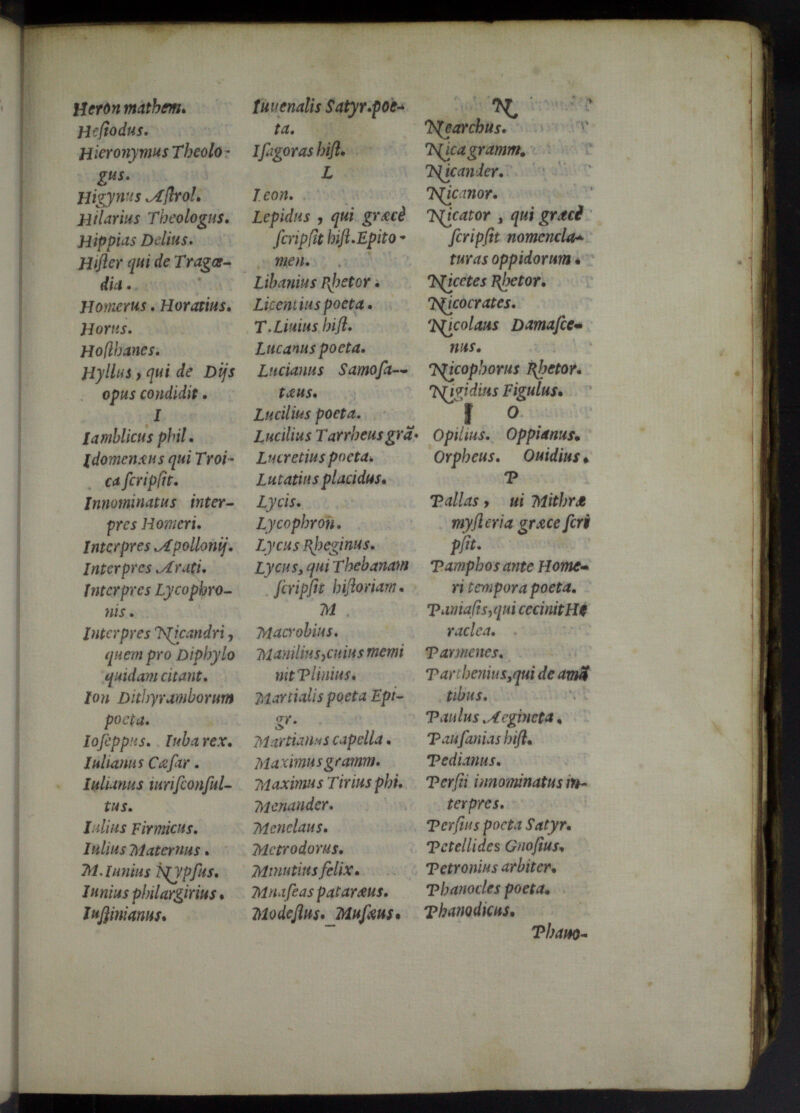 Heron mathem.
Hesiodus.
Hieronymus Theolo-
gus.
Higynus Astrol.
Hilarius Theologus.
Hippias Delius.
Hister qui de Tragœ-
dia.
Homerus. Horatius.
Horus.
Hosthanes.
Hyllus, qui de Dijs
opus condidit.
I
Iamblicus phil.
Idomenæus qui Troi-
ca scripsit.
Innominatus inter-
pres Homeri.
Interpres Apollonij.
Interpres Arati.
Interpres Lycophro-
nis.
Interpres Nicandri,
quem pro Diphylo
quidam citant.
Ion Dithyramborum
poeta.
Ioseppus. Iuba rex.
Iulianus Cæsar.
Iulianus iurisconsul-
tus.
Iulius Firmicus.
Iulius Maternus.
M. Iunius Nypsus.
Iunius philargirius.
Iustinianus.
Iuuenalis Satyr. poë-
ta.
Isagoras hist.
L
Leon.
Lepidus, qui græcè
scripsit hist. Epito-
men.
Libanius Rhetor.
Licentius poeta.
T. Liuius hist.
Lucanus poeta.
Lucianus Samosa-
tæus.
Lucilius poeta.
Lucilius Tarrheus grã.
Lucretius poeta.
Lutatius placidus.
Lycis.
Lycophron.
Lycus Rheginus.
Lycus, qui Thebanam
scripsit historiam.
M
Macrobius.
Manilius, cuius memi
nit Plinius.
Martialis poeta Epi-
gr.
Martianus capella.
Maximus gramm.
Maximus Tirius phi.
Menander.
Menelaus.
Metrodorus.
Minutius felix.
Mnaseas pataræus.
Modestus. Musæus.
N
Nearchus.
Nica gramm.
Nicander.
Nicanor.
Nicator, qui græcè
scripsit nomencla-
turas oppidorum.
Nicetes Rhetor.
Nicocrates.
Nicolaus Damasce-
nus.
Nicophorus Rhetor.
Nigidius Figulus.
O
Opilius. Oppianus.
Orpheus. Ouidius.
P
Pallas, ui Mithræ
mysteria græce scri
psit.
Pamphos ante Home-
ri tempora poeta.
Paniasis, qui cecinit He
raclea.
Parmenes.
Parthenius, qui de amã
tibus.
Paulus Aegineta.
Pausanias hist.
Pedianus.
Persii innominatus in-
terpres.
Persius poeta Satyr.
Petellides Gnosius.
Petronius arbiter.
Phanocles poeta.
Phanodicus.
Phano-